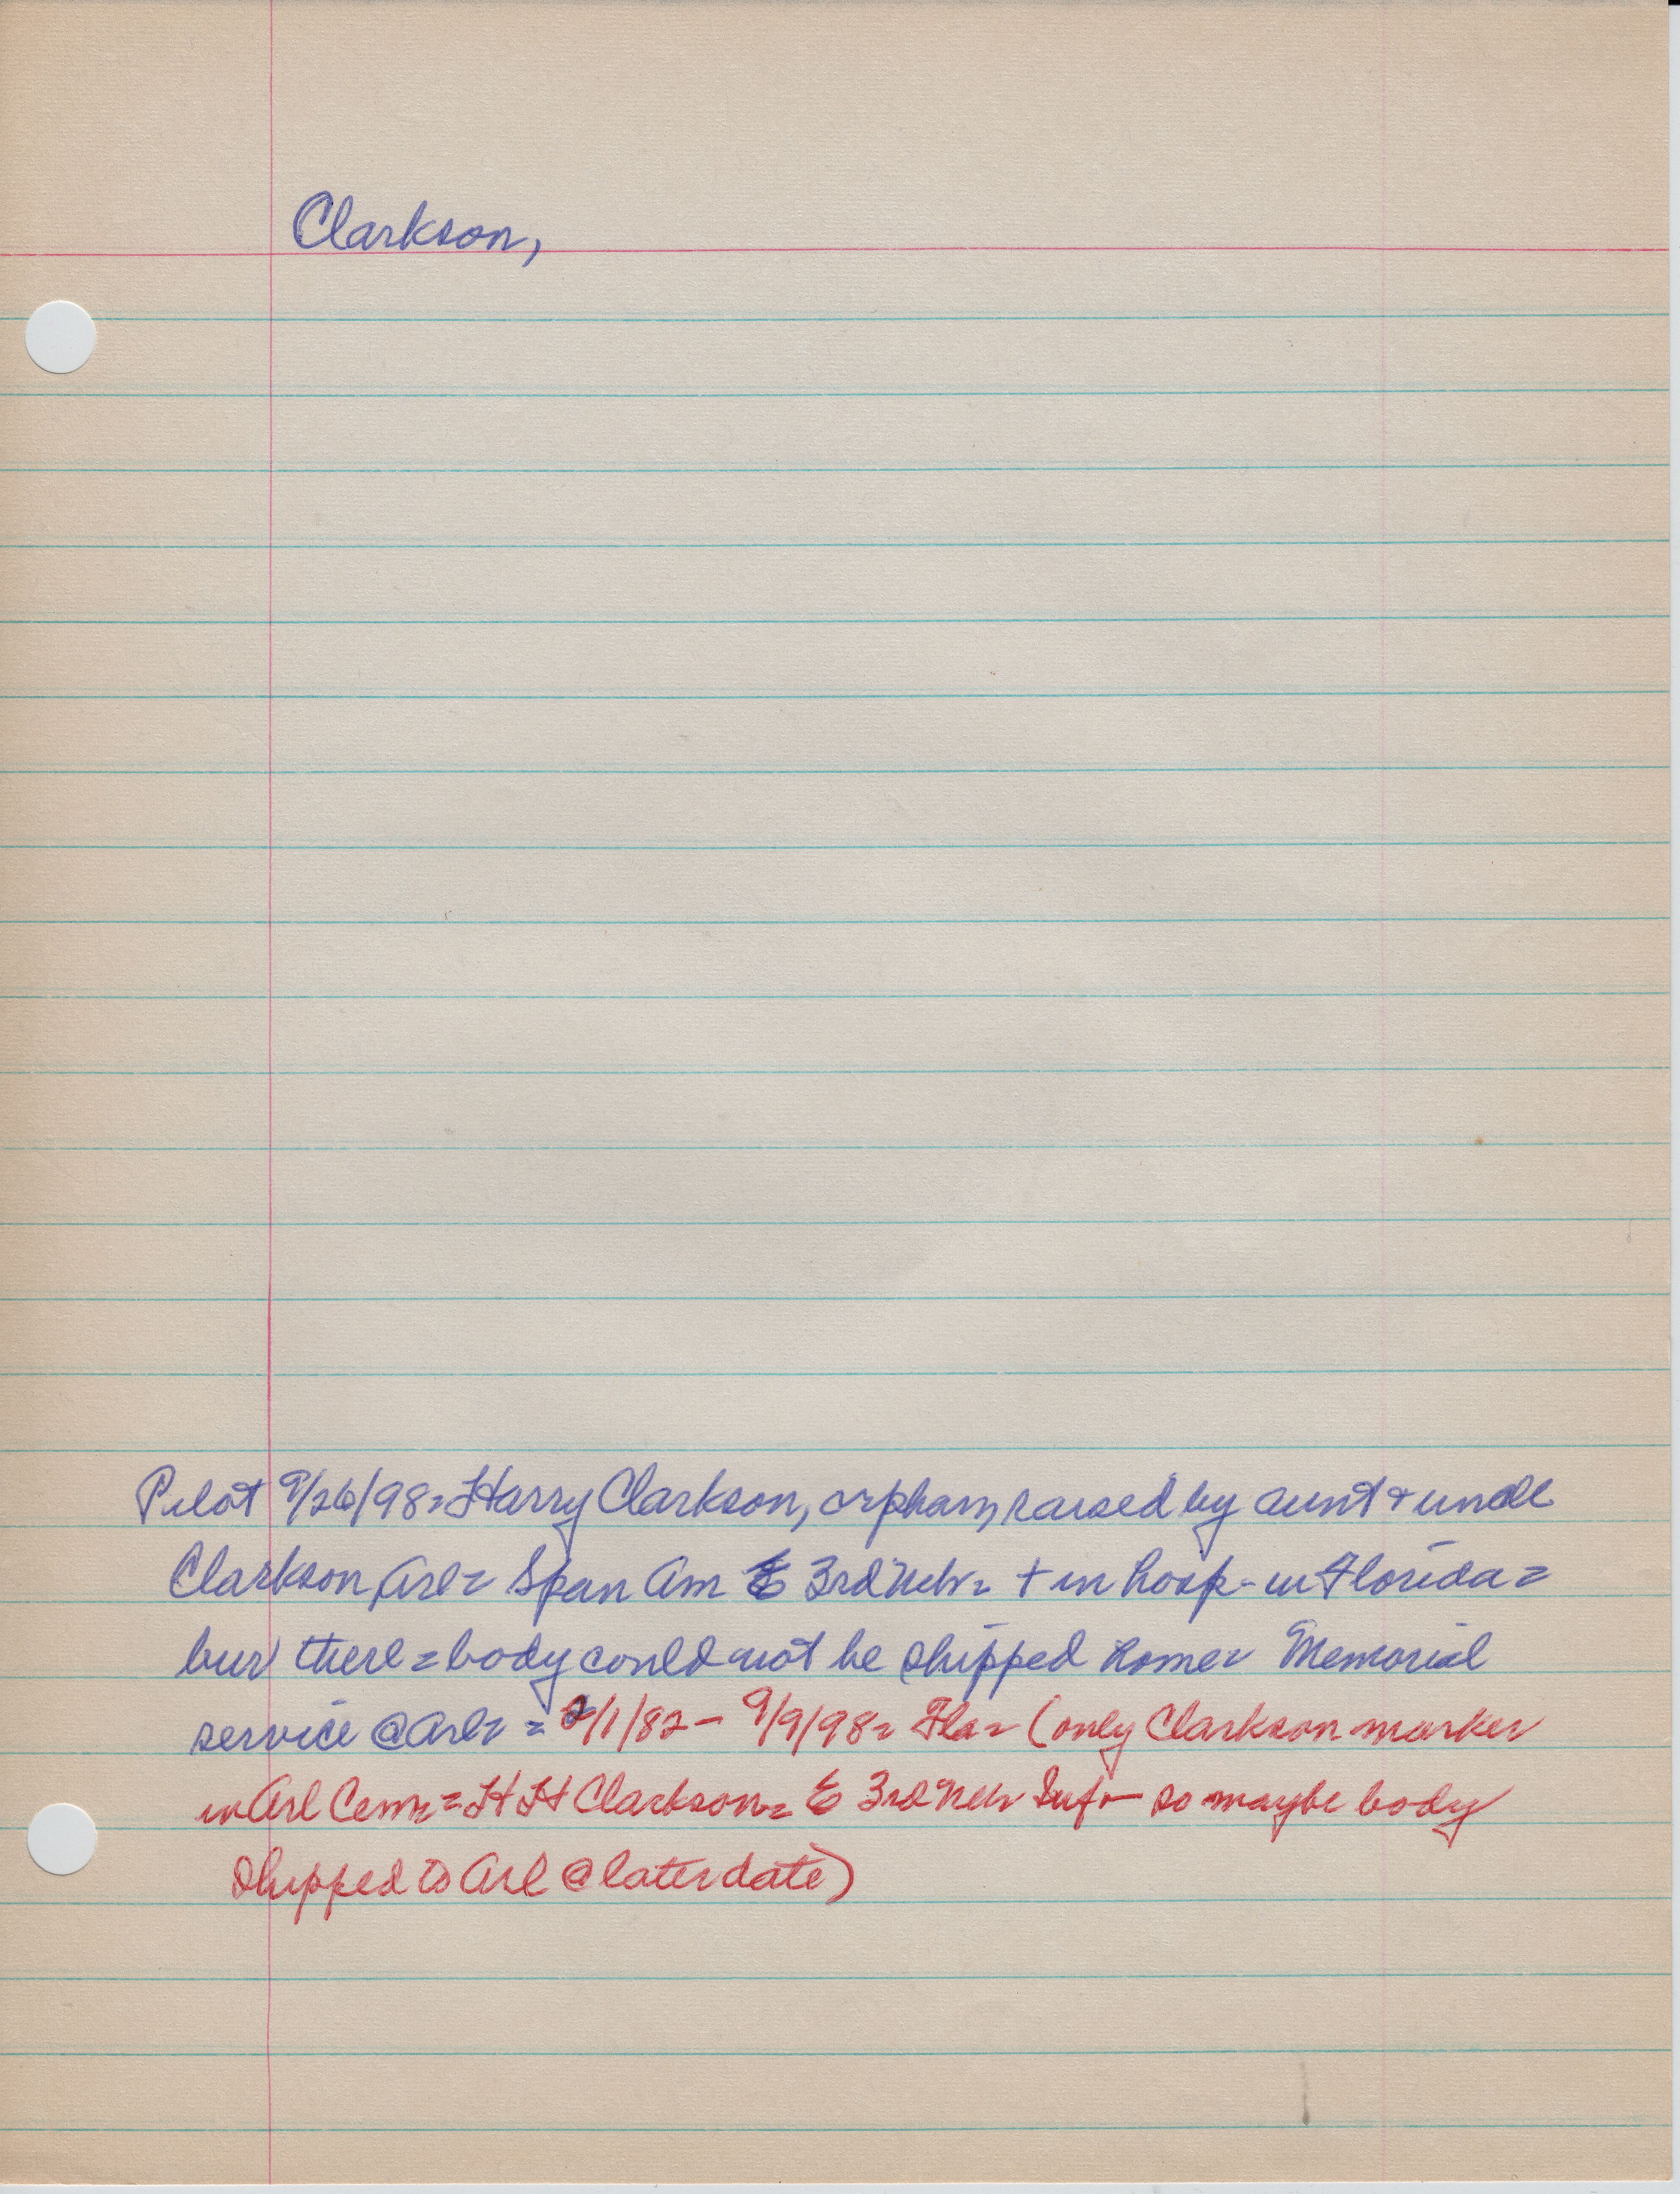 Clarkson,
Pilot 9/26/98= Harry Clarkson, orphan, raised by aunt + uncle
Clarkson, Arl= Span Am E 3rd Neb= + in hosp- in Florida=
bur there= body could not be shipped home= Memorial
service @ Arl= = 2/1/82 - 9/9/98= Fla= (only Clarkson marker
in Arl Cem= H H Clarkson= E 3rd Neb Inf- so maybe body
shipped to Arl @ later date)